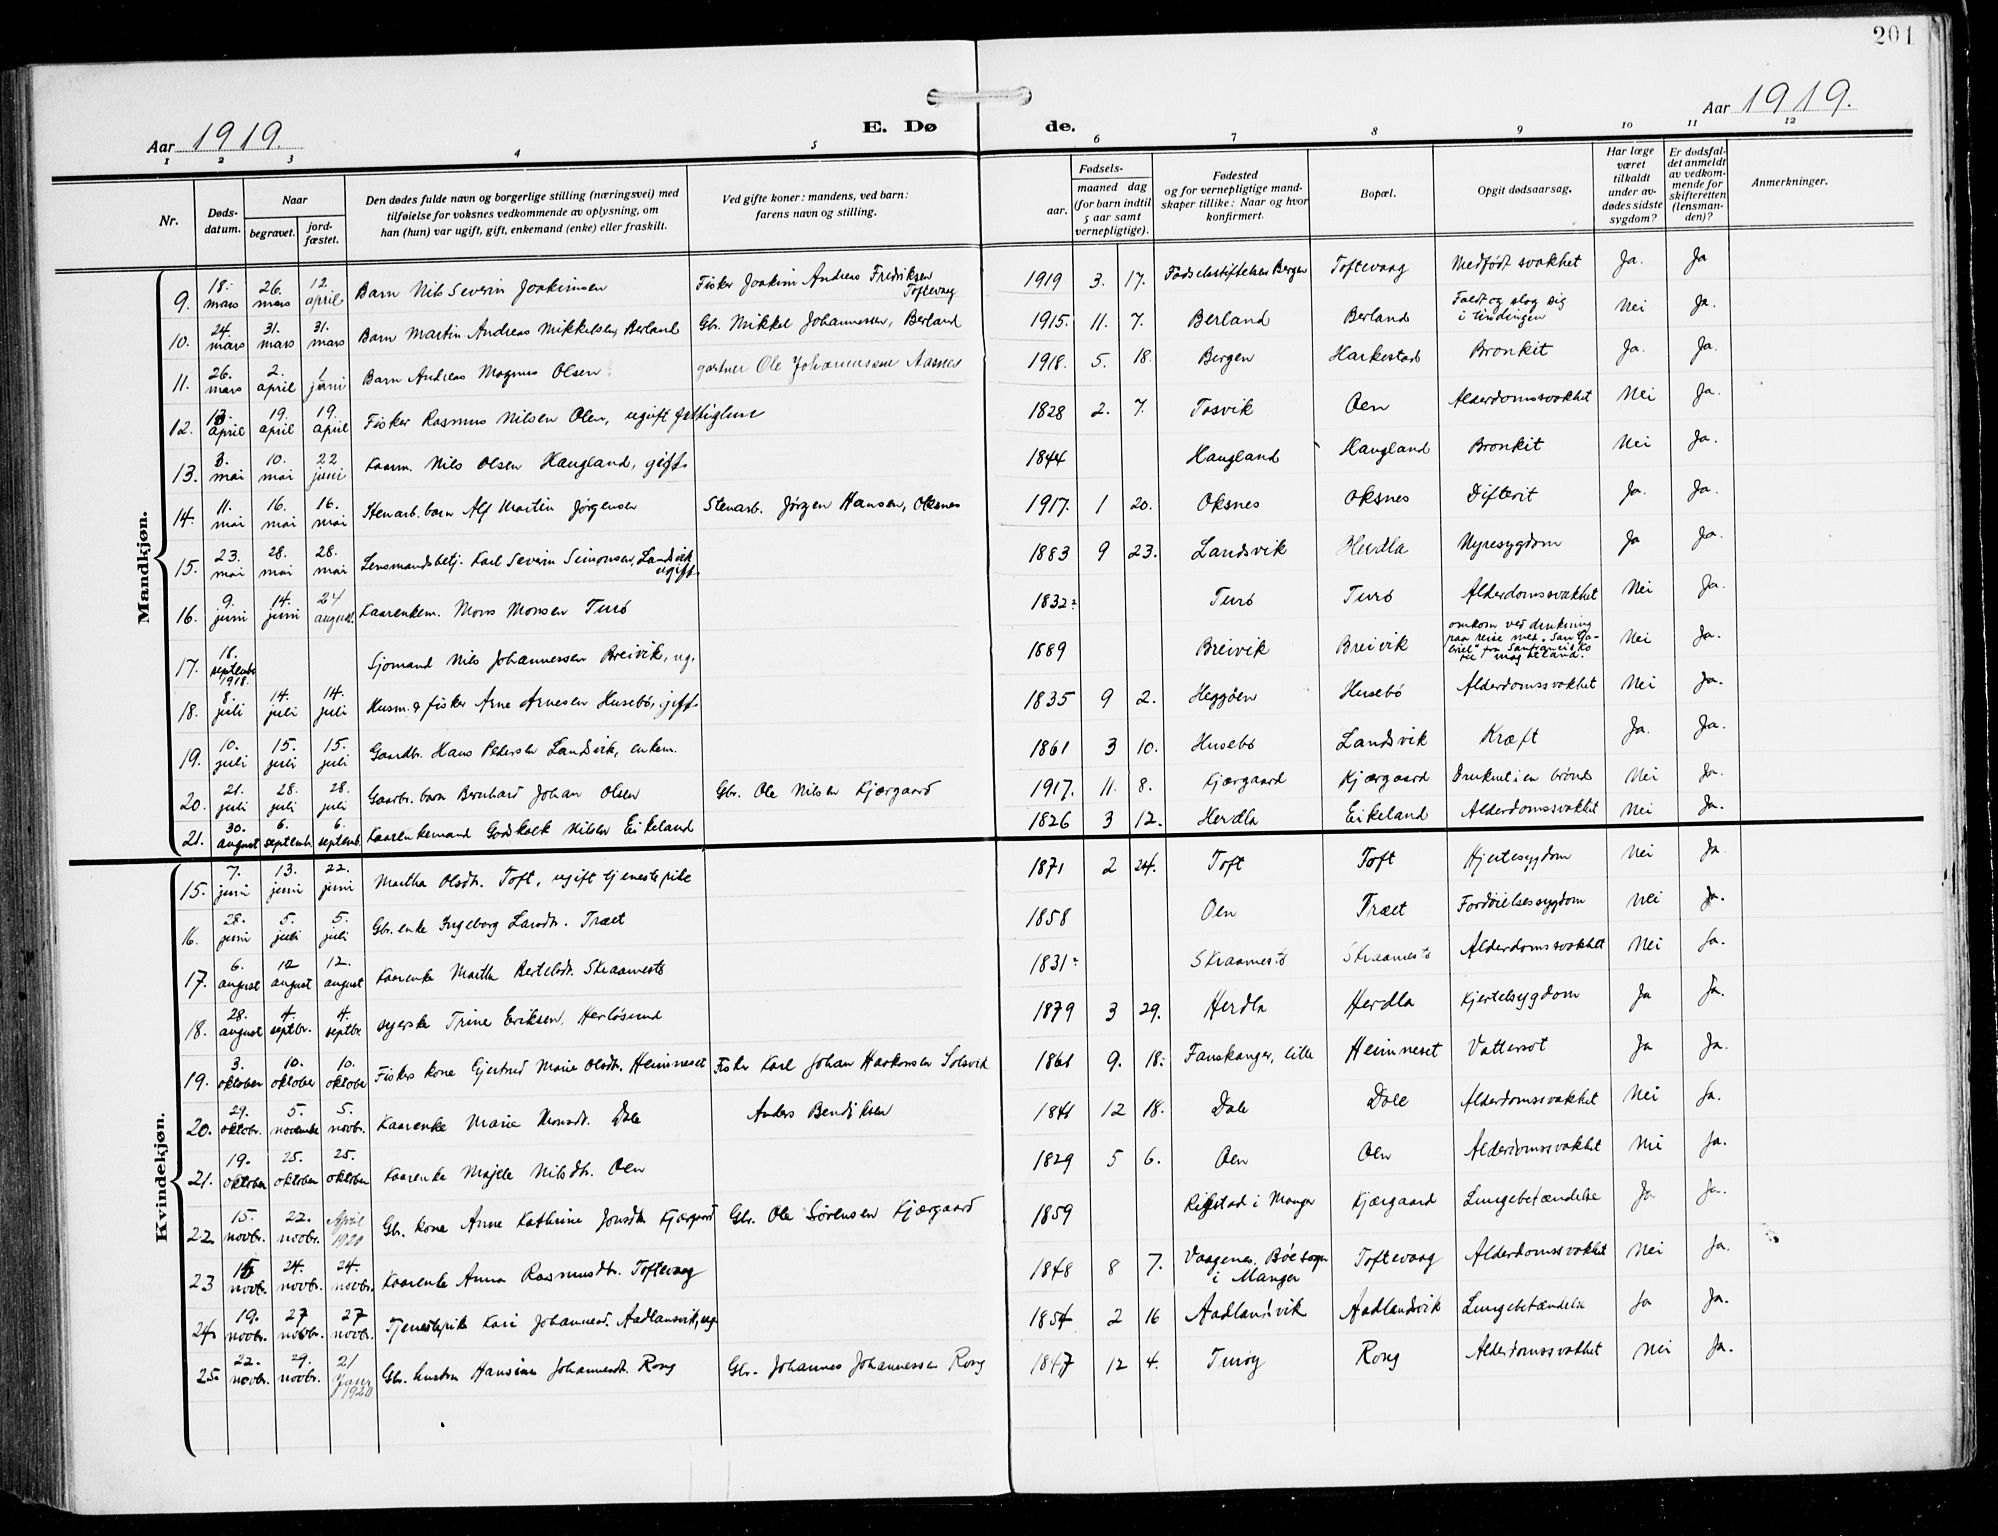 201
Aar 1919. E. Dø de. Aar 1919.
1 2 3 4 5 6 7 8 9 10 11 12
Nr. Døds-datum. Naar begravet. jord-fæstet. Den dødes fulde navn og borgerlige stilling (næringsvei) med tilføielse for voksnes vedkommende av oplysning, om han (hun) var ugift, gift, enkemand (enke) eller fraskilt. Ved gifte koner: mandens, ved barn: farens navn og stilling. Fødsels- aar. maaned dag (for barn indtil 5 aar samt vernepligtige). Fødested og for vernepligtige mand-skaper tillike: Naar og hvor konfirmert. Bopæl. Opgit dødsaarsag. Har læge været tilkaldt under av-dødes sidste sygdom? Er dødsfal-det anmeldt av vedkom-mende for skifteretten (lensman-den)? Anmerkninger.
Mandkjøn.
9. 18. mars 26. mars 12. april Barn Nils Severin Joakimsen Fisker Joakim Andreas Fredriksen Toftevaag 1919 3. 17. Fødselsstiftelsen Bergen Toftevaag Medfødt svakhet Ja. Ja
10. 24. mars 31. mars 31. mars Barn Martin Andreas Mikkelsen, Berland Gbr. Mikkel Johannessen, Berland 1915. 11. 7. Berland Berland Faldt og slog sig i tindingen Nei Ja.
11. 26. mars 2. april 1. juni Barn Andreas Magnus Olsen gartner Ole Johannessen Aasnes 1918. 5. 18. Bergen Harkestad Bronkit Ja. Ja.
12. 13. april 19. april 19. april Fisker Rasmus Nilsen Oen, ugift fattiglem 1828 2. 7. Tosvik Oen Alderdomssvakhet Nei Ja.
13. 3. mai 10. mai 22 juni Kaarm. Nils Olsen Haugland, gift. 1844 Haugland Haugland Bronkit Nei Ja.
14. 11. mai 16. mai 16. mai Stenarb. barn Alf Martin Jørgensen Stenarb. Jørgen Hansen, Oksnes 1917. 1 20. Oksnes Oksnes Difterit Ja. Ja.
15. 23. mai 28. mai 28. mai Lensmandsbetj. Karl Severin Simonsen, Landsvik ugift. 1883 9 23. Landsvik Herdla Nyresygdom Ja Ja.
16. 9. juni 14. juni 24 august. Kaarenkem. Mons Monsen Turø 1832 Turø Turø Alderdomssvakhet Nei Ja.
17. 18. septembr 1918. Sjømand Nils Johannessen Breivik, ug. 1889 Breivik Breivik omkom ved drukning paa reise med "San Gabriel" fra Nei Ja.
18. 8. juli 14. juli 14. juli Husm. & fisker Arne Arnesen Husebø, gift. 1835 9 2. Heggøen Husebø Alderdomssvakhet Nei Ja.
19. 10. juli 15. juli 15. juli Gaardbr. Hans Pedersen Landsvik, enkem. 1861 3 10. Husebø Landsvik Kræft Ja. Ja.
20. 21. juli 28. juli 28. juli Gaarbr. barn Bernhard Johan Olsen Gbr. Ole Nilsen Kjærgaard 1917. 11. 8. Kjærgaard Kjærgaard Druknet i en brønd Nei Ja.
21. 30. august 6. septembr 6. septemb. Kaarenkemand Godskalk Nilsen Eikeland 1826 3 12. Herdla Eikeland Alderdomssvakhet Nei Ja.
Kvindekjøn.
15. 7. juni 13. juni 22. juni Martha Olsdtr. Toft, ugift tjenestepike 1871 2 24. Toft Toft Hjertesygdom Nei Ja
16. 28. juni 5. juli 5. juli Gbr. enke Ingeborg Larsdtr. Træet 1858 Oen Træet Fordøielsessygdom Nei Ja.
17. 6. august 12 august 12. august Kaarenke Martha Bertelsdtr. Skraamestø 1831 Skraamestø Skraamestø Alderdomssvakhet Nei Ja.
18. 28. august 4. septbr. 4. septbr Syerske Trine Eriksen, Herløsund 1879 3 29. Herdla Herdla Kjertelsygdom Ja Ja.
19. 3. oktober 10. oktober 10. oktober Fiskers kone Gjertrud Marie Olsdtr. Heimneset Fisker Karl Johan Haakonsen Solsvik 1861 9. 18. Fanskanger, lille Heimneset Vattersot Ja Ja.
20. 29. oktobr. 5. novembe 5. novbr. Kaarenke Marie Monsdtr. Dale Anders Bendiksen 1841 12 18. Dale Dale Alderdomssvakhet Nei Ja.
21. 19. oktober 25. oktober 25. oktober Kaarenke Majele Nilsdtr. Oen 1829 5 6. Oen Oen Alderdomssvakhet Nei Ja.
22 15. novbr. 22. novbr. April 1920 Gbr. kone Anne Kathrine Jonsdtr Kjærgaard Gbr. Ole Sørensen Kjærgaard 1859 i Manger Kjærgaard Lungebetændelse Ja Ja.
23 15 novbr. 24. novbr. 24. novbr. Kaarenke Anna Rasmusdtr. Toftevaag 1848 8 7. Vaagenes, Bøe sogn i Manger Toftevaag Alderdomssvakhet Nei Ja.
24. 19. novbr. 27 novbr. 27 novbr. Tjenestepike Kari Johannesd. Aadlandsvik, ug. 1854 2 16 Aadlandsvik Aadlandsvik Lungebetændelse Ja Ja.
25. 22. novbr. 29. novbr. 21 Janr 1920 Gbr. hustru Hansine Johannesdtr. Rong Gbr. Johannes Johannessen Rong 1847 12 4. Turøy Rong Alderdomssvakhet Nei Ja.